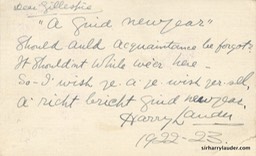 Dear Gillespie
"A guid new year"
Should auld acquaintance be forgot?
It Shouldn't While we're here -
So - I wish ye. a' ye wish yer-sel,
a' richt bricht guid new year.
Harry Lauder
1922-23.
www.sirharrylauder.com